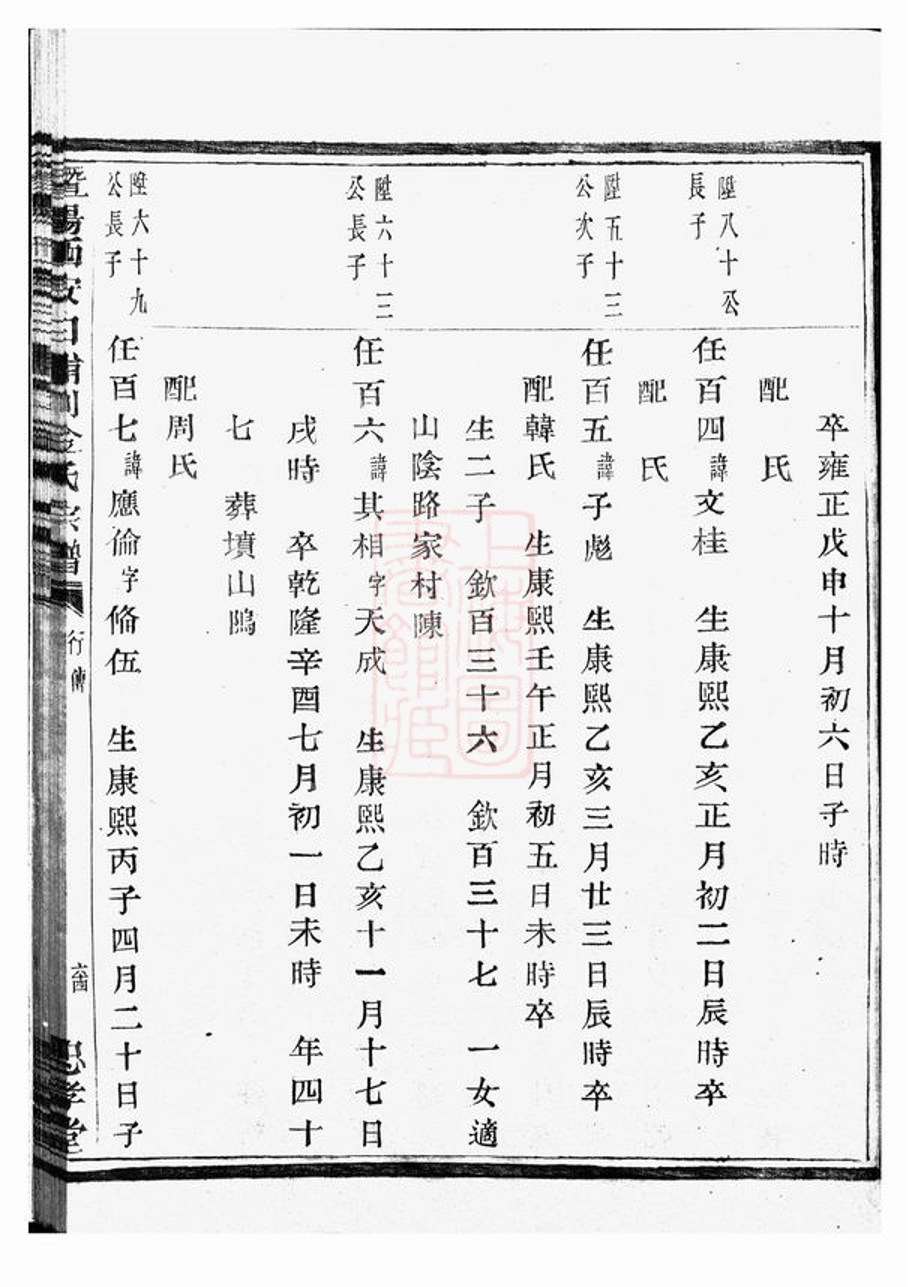 卒雍正戊申十月初六日子時
配　氏
陞八十公
長子
任百四諱文桂　生康熙乙亥正月初二日辰時卒
配　氏
陞五十三
公次子
任百五諱子彪　生康熙乙亥三月廿三日辰時卒
配韓氏　生康熙壬午正月初五日未時卒
生二子　欽百三十六　欽百三十七　一女適
山陰路家村陳
陞六十三
公長子
任百六諱其相字天成　生康熙乙亥十一月十七日
戌時　卒乾隆辛酉七月初一日未時　年四十
七　葬墳山塢
配周氏
陞六十九
公長子
任百七諱應倫字脩伍　生康熙丙子四月二十日子
暨陽 金氏宗譜
行傳
六十四
忠孝堂
上海圖書館藏